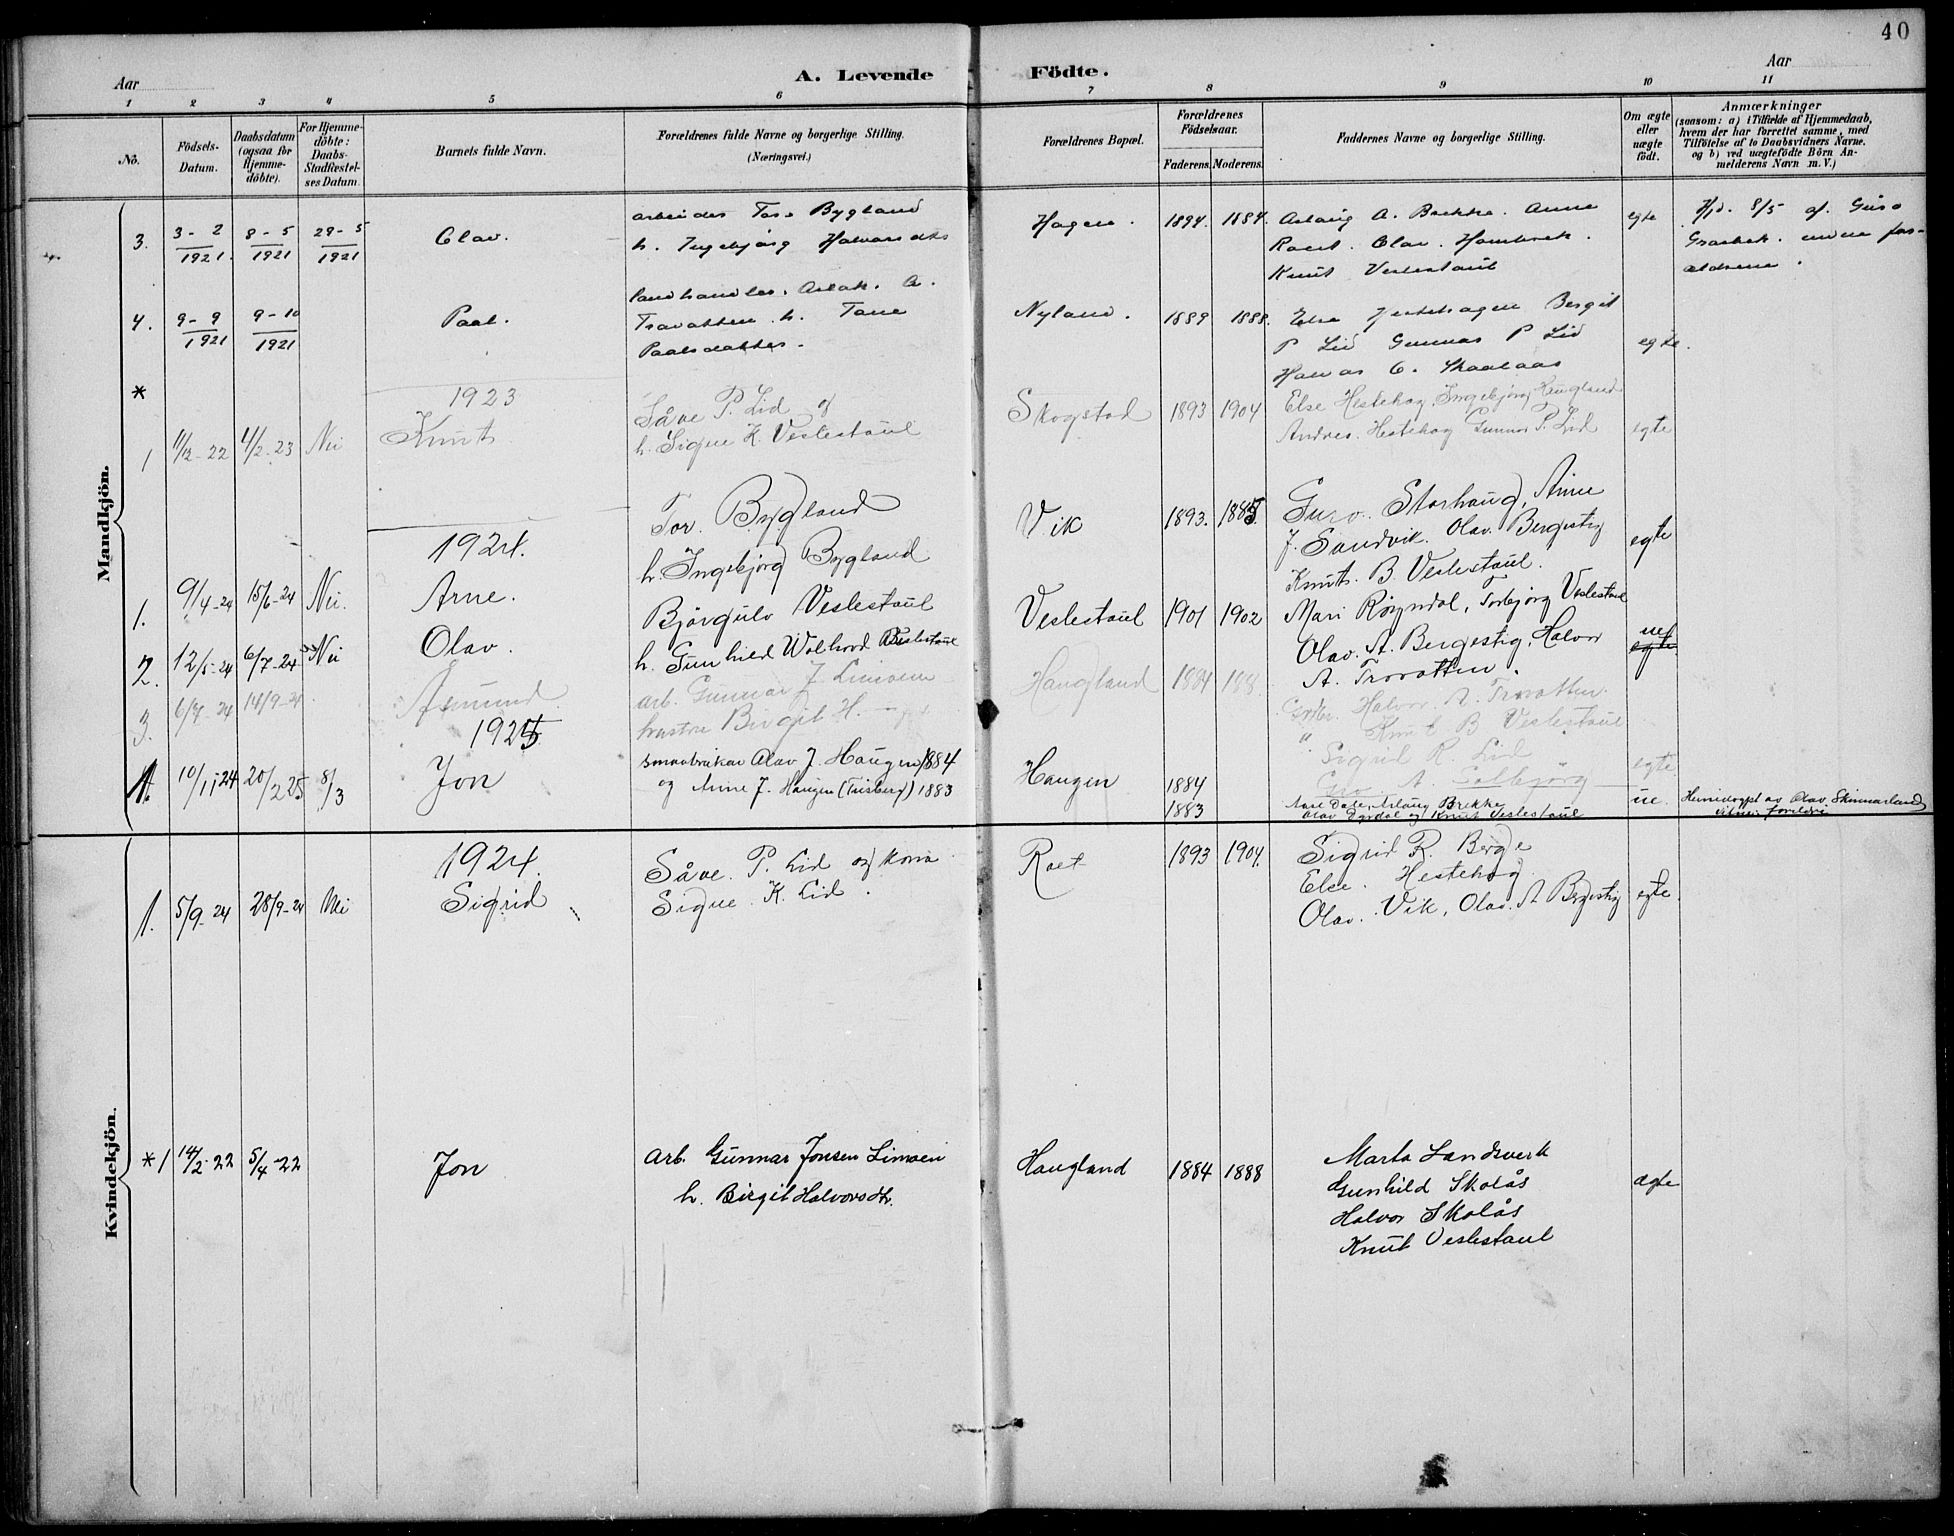 40
Aar
A. Levende
Födte.
Aar
1 2 3 4 5 6 7 8 9 10 11
No.
Födsels-
Datum.
Daabsdatum
(ogsaa for
Hjemme-
döbte).
For Hjemme-
döbte:
Daabs-
Stadfæstel-
ses Datum.
Barnets fulde Navn.
Forældrenes fulde Navne og borgerlige Stilling.
(Næringsvei.)
Forældrenes Bopæl.
Forældrenes
Födselsaar.
Faderens. Moderens.
Faddernes Navne og borgerlige Stilling.
Om ægte
eller
uægte
födt.
Anmærkninger
(saasom: a) i Tilfælde af Hjemmedaab,
hvem der har forrettet samme, med
Tilföielse af to Daabsvidners Navne,
og b) ved uægtefödte Börn An-
melderens Navn m. V.)
Mandkjön.
3. 3-2 1921. 8-5 1921 29-5 1921
Olav.
arbeider Tor Bygland
h. Ingebjörg Halvorsdtr
Hagen. 1894. 1884.
Aslaug A. Brekke. Anne
Roest. Olav.
Knut Veslestaul
egte
Hjd. 8/5 af Guro
ældrene.
4. 9-9 1921 9-10 1921
Paal.
landhandler. Aslak. A.
Trovatten. h. Tone
Paalsdatter.
Nyland. 1889 1888.
Else Hestehagen Bergit
P Lid Gunnar P Lid
Halvor O. Skaalaas
egte.
*
1923
1 11/12-22 4/2-23 Nei
Knut
Såve P. Lid og
h. Signe K. Veslestaul
Skogstad 1893 1904
Else Hestehag, Ingebjörg Haugland
Andres. Hestehag Gunnar P. Lid
egte
1924.
1. 9/4-24 15/6-24 Nei.
Arne.
Tor. Bygland
h. Ingebjörg Bygland
Vik 1893. 1885
Guro. Storhaug, Anne
J. Sandvik. Olav. Bergestig
Knut. B. Veslestaul.
egte
2. 12/5-24 6/7-24 Nei
Olav.
Björgulv Veslestaul
h. Gunhild Wolhord Veslestaul
Veslestaul 1901 1902
Mari Röyndal, Torbjörg Veslestaul
Olav. A. Bergestig, Halvor
A. Trovatten.
uegte
3. 6/7-24 14/9-24
Asmund
arb. Gunnar J Limoen
hustru Birgit H.
Haugland 1884 188
Halvor. A. Trovatten.
" Knut B Veslestaul
Sigrid R. Lid
Guro A. Solbjörg
egte
1925
1. 10/11-24 20/2 25 8/3
Jon
smaabruker Olav J. Haugen 1884
og Anne J. Haugen (Trisberg) 1883
Haugen 1884
1883
Aase Dale, Aslaug Brekke
Olav Dyrdal og Knut Veslestaul
ue.
Heimedöypt av Olav Skinnarland
Vitner foreldri
Kvindekjön.
1924.
1. 5/9-24 28/9-24 Nei
Sigrid
Såve. P. Lid og kona
Signe. K. Lid.
Roet 1893 1904.
Sigrid R. Berge
Else. Hestehag.
Olav. Vik, Olav. A Bergestig
egte.
*1 14/2-22 5/4-22
Jon
Arb. Gunnar Jonsen Limoen
h. Birgit Halvorsdtr.
Haugland 1884 1888
Marta Landsverk
Gunhild Skolås
Halvor Skolås
Knut Veslestaul
ægte